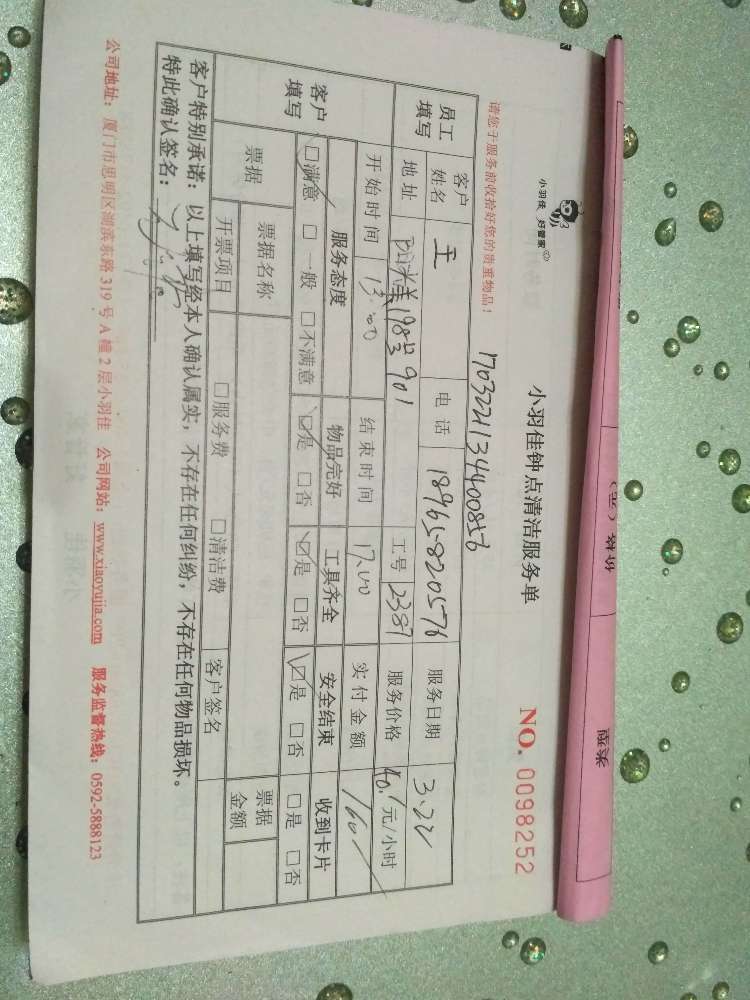 小羽佳 好管家
小羽佳钟点清洁服务单
NO. 0098252
请您于服务前收拾好您的贵重物品！
170322113440085b
员工填写 客户姓名 王 电话 18965820576 服务日期 3.22
地址 阳光美 198号 901 工号 2387 服务价格 40. 元/小时
开始时间 13:00 结束时间 17.00 实付金额 160
客户填写 服务态度 物品完好 工具齐全 安全结束 收到卡片
☑满意 □一般 □不满意 ☑是 □否 ☑是 □否 ☑是 □否 □是 □否
票据 票据名称 票据金额
开票项目 □服务费 □清洁费 客户签名
客户特别承诺：以上填写经本人确认属实，不存在任何纠纷，不存在任何物品损坏。
特此确认签名：
公司地址：厦门市思明区湖滨东路319号A幢2层小羽佳 公司网站：www.xiaoyujia.com 服务监督热线：0592-5888123